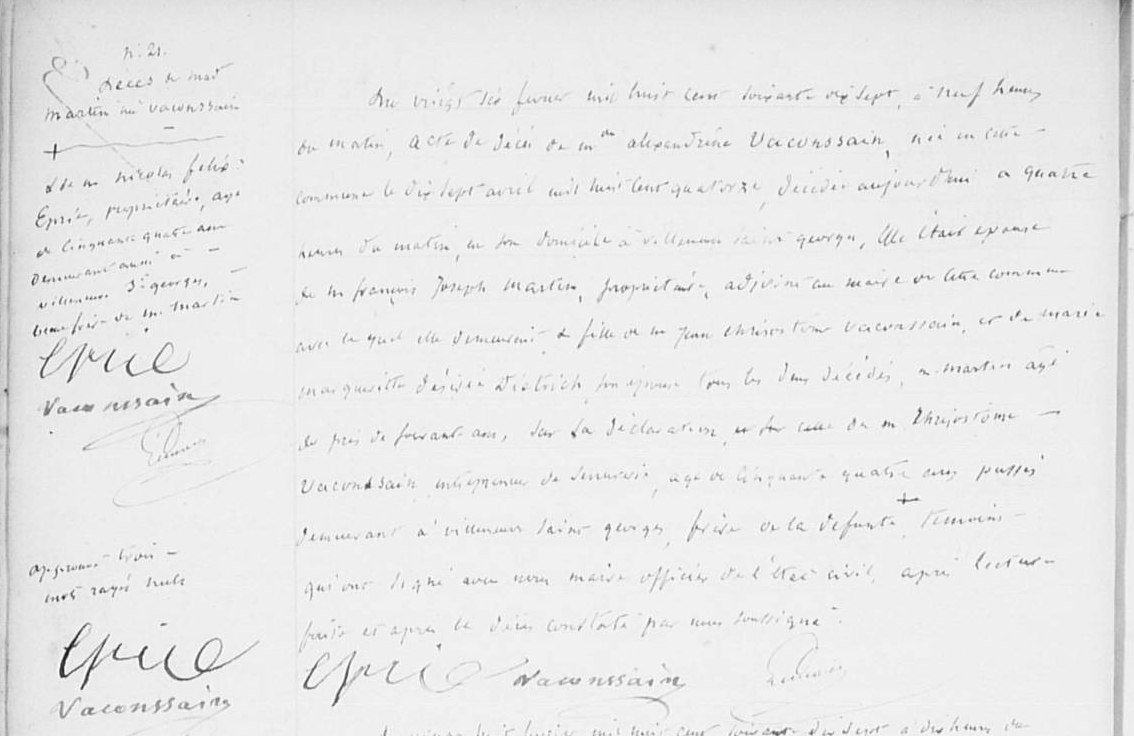 N. 21.
Décès de mad
Martin née Vaconssain
+
& de m nicolas felix
Epvié, propriétaire, agé
de cinquante quatre ans
demeurant aussi à
villeneuve St georges,
beau frère de m. martin
Vaconssain
approuvé trois
mots rayés nuls
Vaconssain
Du vingt six fevrier mil huit cent soixante dix sept, à neuf heures
du matin, acte de décès de mde alexandrine Vaconssain, née en cette
commune le dix sept avril mil huit cent quatorze, décédée aujourd'hui a quatre
heures du matin, en son domicile à villeneuve saint georges, Elle était epouse
de m françois Joseph Martin, propriétaire, adjoint au maire de cette commune
avec lequel elle demeurait, & fille de m Jean chrisostome Vaconssain, et de marie
margueritte désirée Dietrich, son épouse tous les deux décédés, m. martin agé
de près de soixante ans, sur la déclaration, et sur celle de m. Chrisostôme
Vaconssain entrepreneur de serrurerie, agé de cinquante quatre ans passés
demeurant à villeneuve saint georges, frère de la defunte + temoins
qui ont signé avec nous maire officier de l'état civil, après lecture
faite et après le décès constaté par nous soussigné.
Vaconssain
huit février mil huit cent soixante dix sept à dix heures du